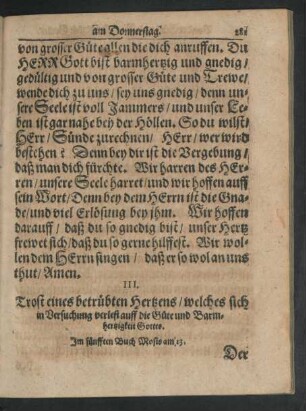 am Donnerstag. 281
von grosser Güte allen die dich anruffen. Du
HERR Gott bist barmhertzig und gnedig/
gedültig und von grosser Güte und Trewe/
wende dich zu uns / sey uns gnedig / denn un-
sere Seele ist voll Jammers / und unser Le-
ben ist gar nahe bey der Höllen. So du wilst/
HErr / Sünde zurechnen / HErr / wer wird
bestehen? Denn bey dir ist die Vergebung /
daß man dich fürchte. Wir harren des HEr-
ren / unsere Seele harret und wir hoffen auff
sein Wort / Denn bey dem HErrn ist die Gna-
de / und viel Erlösung bey jhm. Wir hoffen
darauff / daß du so gnedig bist / unser Hertz
frewet sich / daß du so gerne hilffest. Wir wol-
len dem HErrn singen / daß er so wol an uns
thut / Amen.
III.
Trost eines betrübten Hertzens / welches sich
in Versuchung verlest auff die Güte und Barm-
hertzigkeit Gottes.
Im fünfften Buch Mosis am 13.
Der